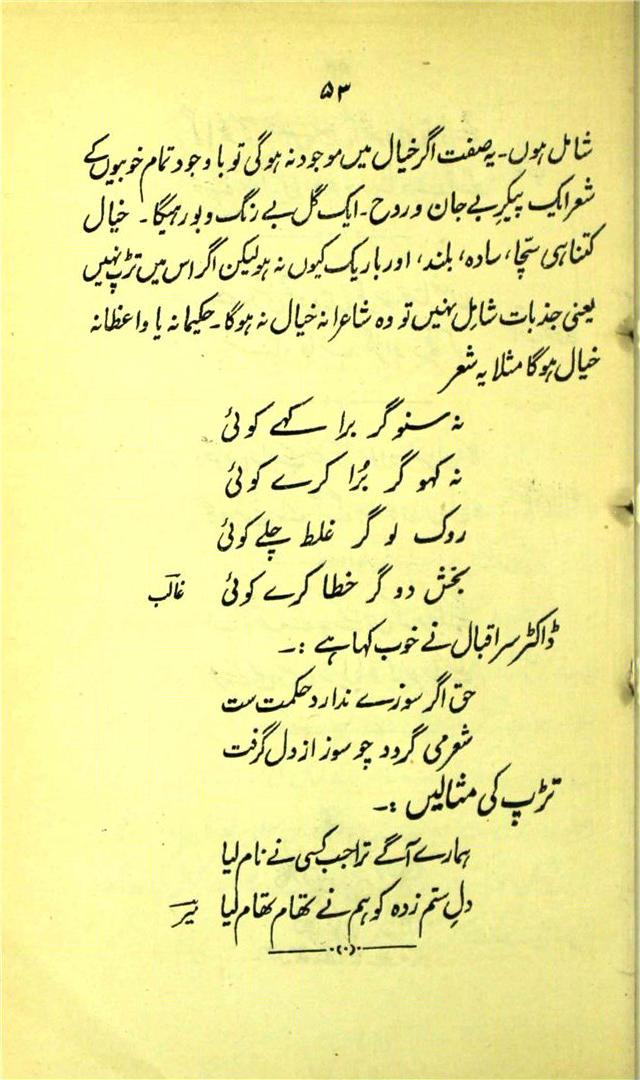 ۵۳
شامل ہوں۔ یہ صفت اگر خیال میں موجود نہ ہوگی تو باوجود تمام خوبیوں کے
شعر ایک پیکرِ بے جان و روح۔ ایک گل بے رنگ و بو رہیگا۔ خیال
کتنا ہی سچّا، سادہ، بلند، اور باریک کیوں نہ ہو لیکن اگر اس میں تڑپ نہیں
یعنی جذبات شامل نہیں تو وہ شاعرانہ خیال نہ ہوگا۔ حکیمانہ یا واعظانہ
خیال ہوگا مثلا یہ شعر
نہ سنو گر برا کہے کوئی
نہ کہو گر بُرا کرے کوئی
روک لو گر غلط چلے کوئی
بخش دو گر خطا کرے کوئی غالب
ڈاکٹر سر اقبال نے خوب کہا ہے :۔
حق اگر سوزے ندارد حکمت ست
شعر می گردد چو سوز از دل گرفت
تڑپ کی مثالیں :۔
ہمارے آگے ترا جب کسی نے نام لیا
دلِ ستم زدہ کو ہم نے تھام تھام لیا میر